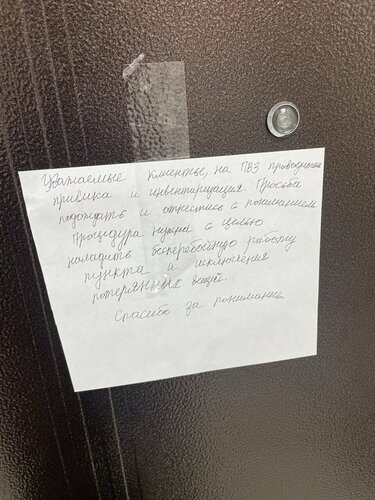 Уважаемые клиенты, на ПВЗ проводится
приёмка и инвентаризация. Просьба
подождать и отнестись с пониманием
Процедура нужна с целью
наладить бесперебойную работу
пункта и исключения
потерянных вещей.
Спасибо за понимание.